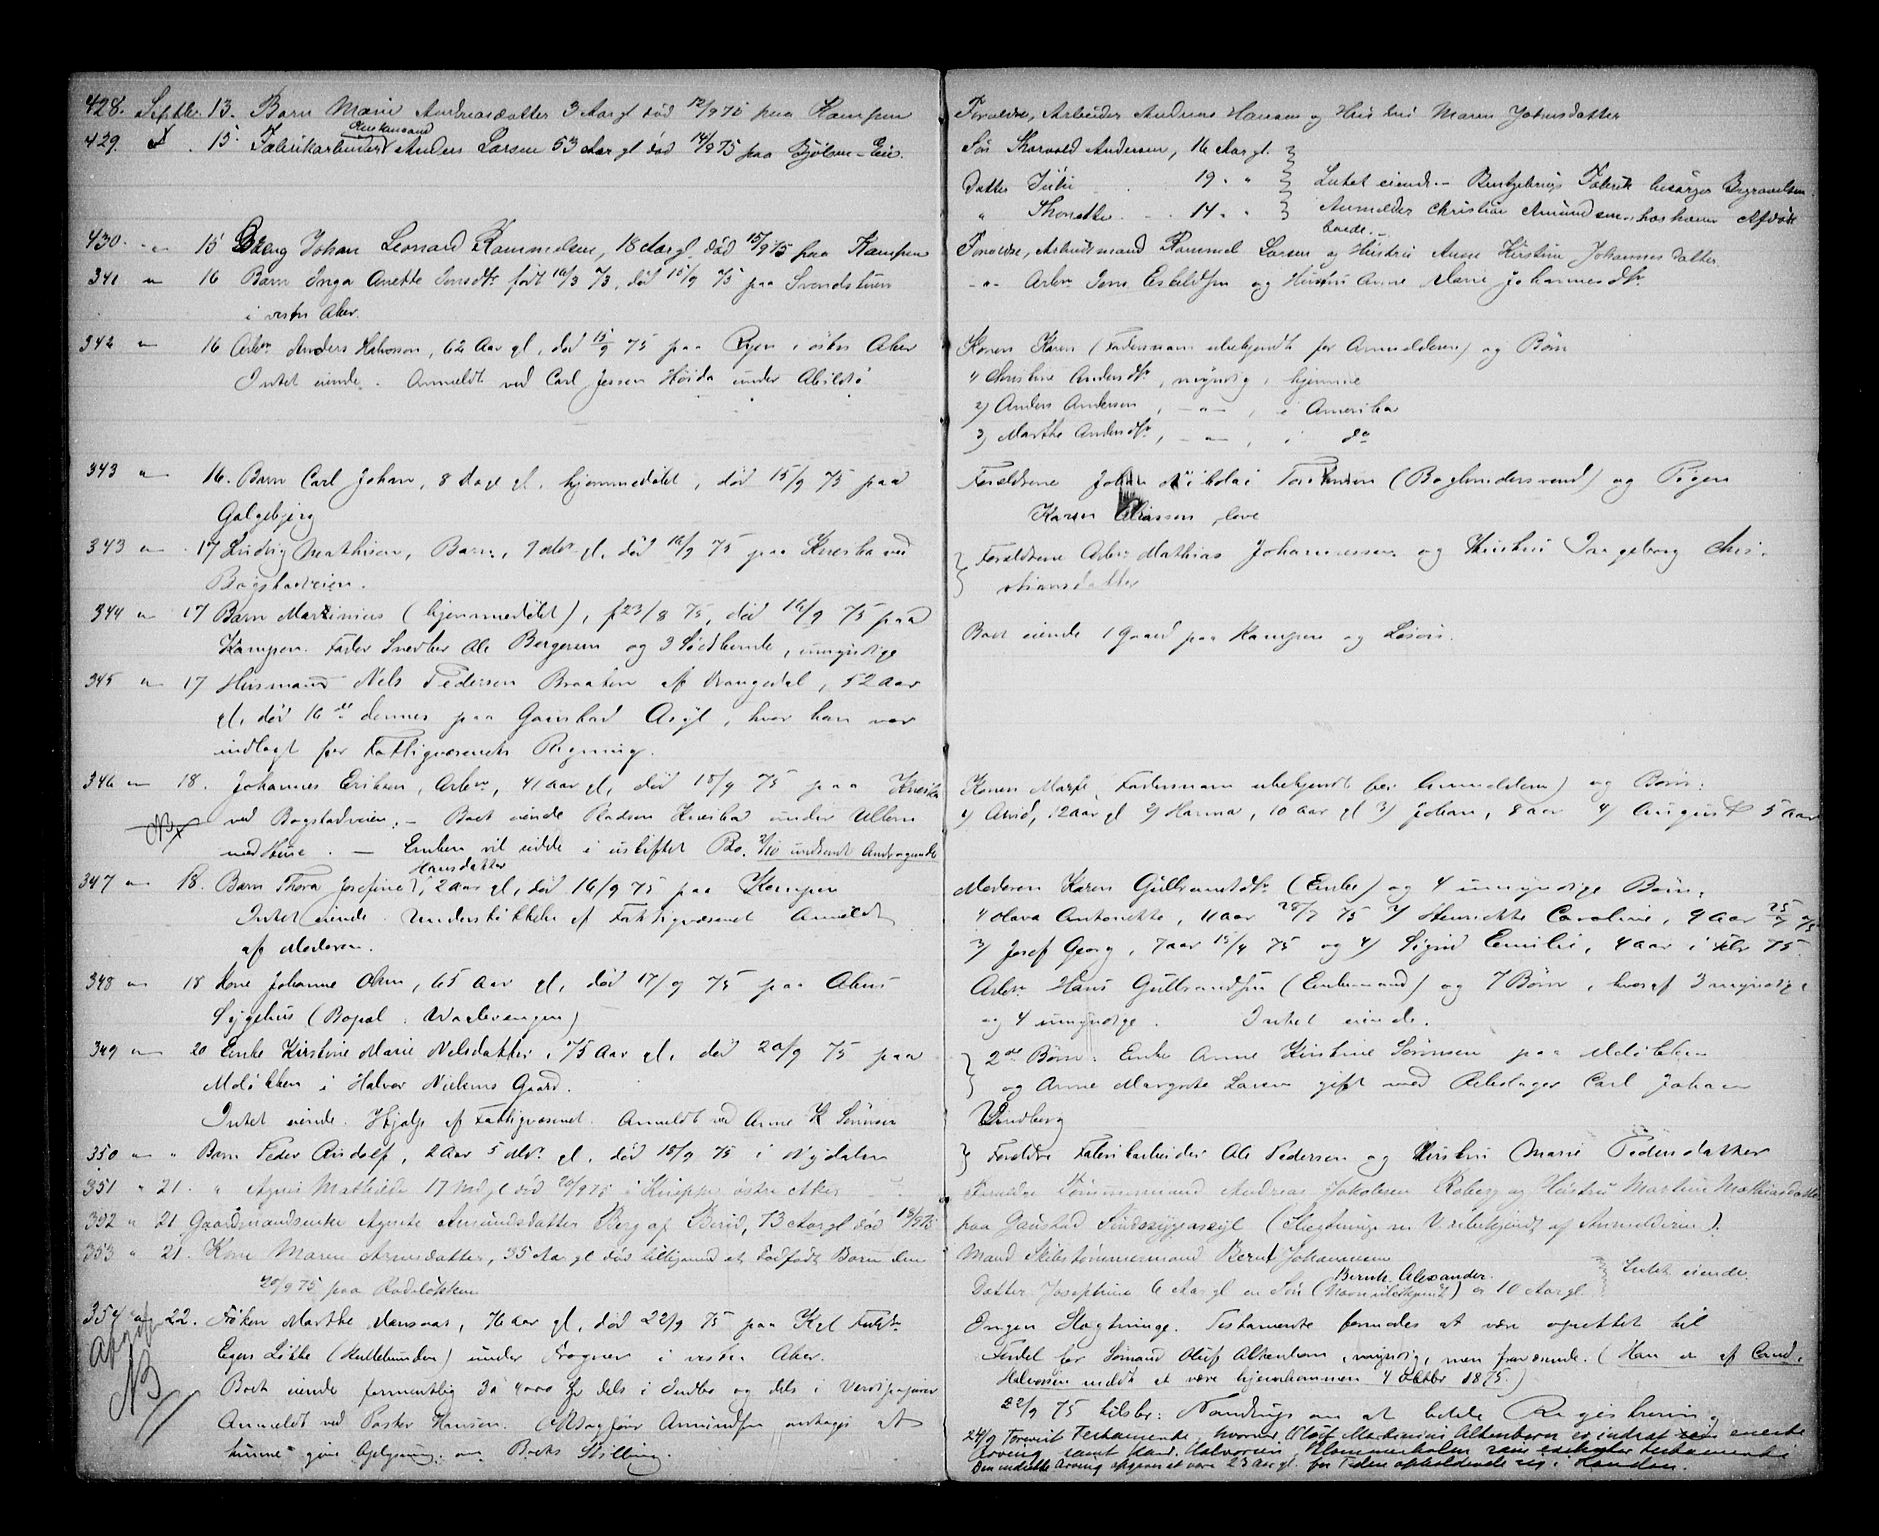 428. Septbr. 13. Barn Marie Andreasdatter 3 Aar gl død 12/9 75 paa Kampen
Forældre, Arbeider Andreas Hansen og Hustru Maren Johnsdatter
Enkemand
429. 15. Fabrikarbeider Anders Larsen 53 Aar gl død 14/9 75 paa Bjølsen-Eie.
Søn Thorvald Andersen, 16 Aar gl.
Datter Julie 19 " Intet eiende - Fabrik besørger Begravelsen
" Thonette 14 " Anmelder Christian Amundsen hos ham Afdøde
boede.
430. " 15 Dreng Johan Leonard Rammelsen, 18 Aar gl. død 15/9 75 paa Kampen
Forældre, Arbeidsmand Rammel Larsen og Hustru Anne Kirstine Johannesdatter
341 " 16 Barn Inga Anette Jensdtr født 16/3 73, død 15/9 75 paa Svendstuen
i vestre Aker.
" Arbr Jens Eskildsen og Hustru Anne Marie Johannesdtr
342 " 16 Arbr Anders Halvorsen, 62 Aar gl, død 15/9 75 paa Ryen i østre Aker
Intet eiende. Anmeldt ved Carl Jessen Høida under Abildsø
Konen Karen (Fadersnavn ubekjendt for Anmelderen) og Børn
1) Christine Andersdtr, myndig, hjemme
2) Anders Andersen, - " -, i Amerika
3) Marthe Andersdtr, - " -, i do
343 " 16. Barn Carl Johan, 8 Dage gl. hjemmedøbt, død 15/9 75 paa
Galgebjerg
Forældrene Johan Nikolai Torstensen (Bogbindersvend) og Pigen
Karen
343 " 17 Ludvig Mathisen, Barn, 9 Mdr gl, død 16/9 75 paa ved
Bogstadveien.
Forældrene Arbr Mathias Johannessen og Hustru Ingeborg Chri-
stiansdatter
344 " 17 Barn Martinius (hjemmedøbt), f 23/8 75, død 16/9 75 paa
Kampen. Fader Snedker Ole Bergersen og 3 Sødskende, umyndige
Boet eiende 1 Gaard paa Kampen og Løsøre.
345 " 17 Husmand Nels Pedersen Braaten af Drangedal, 52 Aar
gl, død 16de dennes paa Gaustad Asyl, hvor han var
indlagt for Fattigvæsenets Regning.
346 " 18. Johannes Eriksen, Arbr, 41 Aar gl, død 15/9 75 paa
ved Bogstadveien. - Boet eiende Pladsen under Ullern
NB med Huse. - Enken vil sidde i uskiftet Bo. 2/10 indsendt Andragende
Konen Marthe, Fadersnavn ubekjendt for Anmelderen) og Børn:
1) Arvid, 12 aar gl 2) Hanna, 10 aar gl 3) Johan, 8 aar 4) August 5 aar
Hansdatter
347 " 18. Barn Thora Josefine, 2 aar gl, død 16/9 75 paa Kampen
Intet eiende. Understøttelse af Fattigvæsenet Anmeldt
af Moderen.
Moderen Karen Gulbrandsdtr (Enke) og 4 umyndige Børn,
1) Olava Antonette, 11 aar 28/7 75 2) Henriette Caroline, 9 aar 25/7 75
3) Josef Georg, 7 aar 15/4 75 og 4) Sigrid Emilie, 4 aar i Febr 75.
348 " 18 Kone Johanne Olsen, 65 Aar gl, død 17/9 75 paa Akers
Sygehus (Bopæl: Waalerengen)
Arbr Hans Gulbrandsen (Enkemand) og 7 Børn, hvoraf 3 myndige
og 4 umyndige. Intet eiende.
349 " 20 Enke Kirstine Marie Nelsdatter, 75 Aar gl, død 20/9 75 paa
Møløkken i Halvor Nielsens Gaard.
Intet eiende. Hjælp af Fattigvæsenet. Anmeldt ved Anne K Sørensen
2de Børn: Enke Anne Kirstine Sørensen paa Møløkken
og Anne Margrete Larsen gift med Rebslager Carl Johan
Lindberg
350 " " Barn Peder Rudolf, 2 Aar 5 Mdr. gl, død 18/9 75 i Nydalen
Forældre Fabrikarbeider Ole Pedersen og Hustru Marie Pedersdatter
351 " 21. " Agnes Mathilde 17 Md gl død 20/9 75 i østre Aker
Forældre Tømmermand Andreas Jakobsen Roberg og Hustru Martine Mathiasdatter
352 " 21 Gaardmandsenke Agnete Amundsdatter Berg af Berid, 73 Aar gl død 18/9 75
paa Gaustad Sindssygeasyl (Slægtninge m. V. ubekjendt af Anmelderen).
353 " 21. Kone Maren Arnesdatter, 35 Aar gl død tilligemed et dødfødt Barn den
20/9 75 paa Rodeløkken
Mand Skibstømmermand Bernt Johannesen
Bernh. Alexander.
Datter Josephine 6 Aar gl en Søn (Navn ubekjendt) er 10 Aar gl. Intet eiende.
354 " 22. Frøken Marthe Mansaas, 76 aar gl, død 22/9 75 paa Kgl
Løkke (Hullebunden) under Frogner i vestre Aker.
NB Boet eiende formentlig 3 a 4000 Spd dels i Indbo og dels i Værdipapirer
Anmeldt ved Pastor Hansen. Amundsen antages at
kunne give Oplysning om Boets Stilling.
Ingen Slægtninge. Testamente formodes at være oprettet til
Fordel for Sømand Oluf Altenborn, myndig, men fraværende. (Han er af Cand.
Halvorsen meldt at være hjemkommen 4 Oktbr 1875.)
22/9 75 tilskr: om at betale Registrering
24/9 Forevist Testamente, hvorved Oluf Martinius Altenborn er indsat som eneste
Arving samt Kand. Halvorsen, som
Den indsatte Arving opgives at være 23 Aar gl. for Tiden opholdende sig i London.